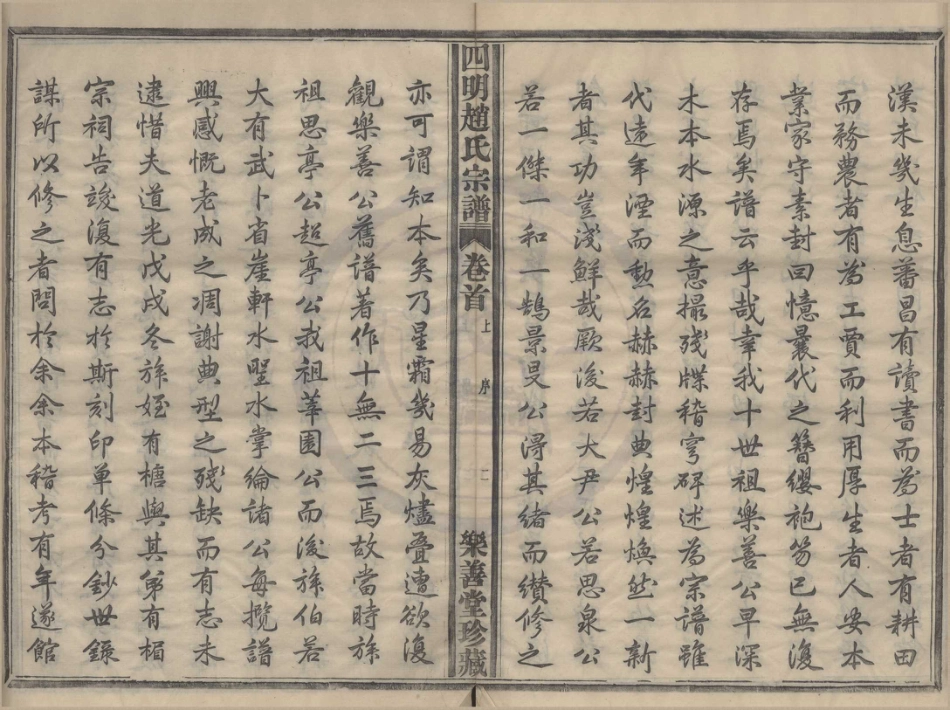 漢未幾生息蕃昌有讀書而為士者有耕田
而務農者有為工賈而利用厚生者人安本
業家守素封回憶曩代之簪纓袍笏已無復
存焉矣譜云乎哉幸我十世祖樂善公早深
木本水源之意撮殘牒稽穹碑述為宗譜雖
代遠年湮而勳名赫赫封典煌煌煥然一新
者其功豈淺鮮哉厥後若大尹公若思泉公
若一傑一和一鵠景旻公淂其緒而纘修之
四明趙氏宗譜 卷首 上 序 二 樂善堂珍藏
亦可謂知本矣乃星霜幾易灰燼疊遭欲復
觀樂善公舊譜著作十無二三焉故當時族
祖思亭公超亭公我祖莘圃公而後族伯若
大有武卜省崖軒水聖水掌綸諸公每攬譜
興感慨老成之凋謝典型之殘缺而有志未
逮惜夫道光戊戌冬族姪有樀與其弟有楣
宗祠告竣復有志於斯刻印單條分鈔世錄
謀所以修之者問於余余本稽考有年遂館